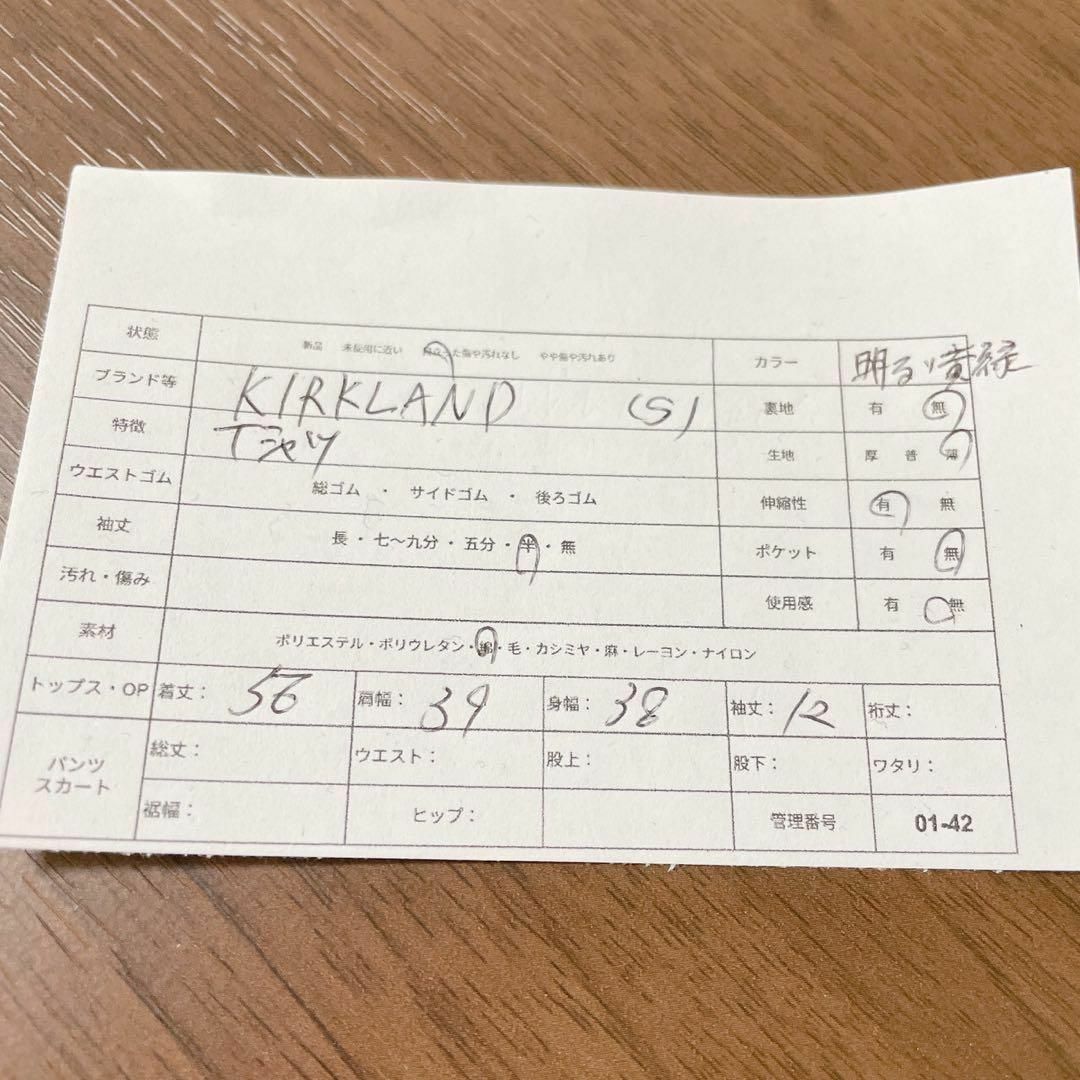 状態 新品 未使用に近い 目立った傷や汚れなし やや傷や汚れあり カラー 明るい黄緑
ブランド等 KIRKLAND (S) 裏地 有 無
特徴 Tシャツ 生地 厚 普 薄
ウエストゴム 総ゴム ・ サイドゴム ・ 後ろゴム 伸縮性 有 無
袖丈 長・七〜九分・五分・半・無 ポケット 有 無
汚れ・傷み 使用感 有 無
素材 ポリエステル・ポリウレタン・綿・毛・カシミヤ・麻・レーヨン・ナイロン
トップス・OP 着丈: 56 肩幅: 39 身幅: 38 袖丈: 12 裄丈:
パンツ スカート 総丈: ウエスト: 股上: 股下: ワタリ:
裾幅: ヒップ: 管理番号 01-42